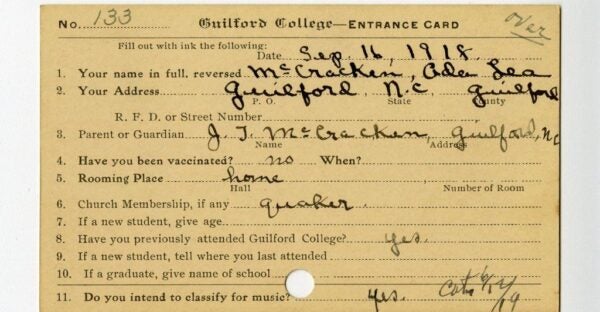 No. 133 Guilford College—ENTRANCE CARD over
Fill out with ink the following:
Date Sep. 16, 1918.
1. Your name in full, reversed McCracken, Ada Lea
2. Your Address Guilford, N.C. Guilford
P. O. State County
R. F. D. or Street Number
3. Parent or Guardian J. T. McCracken, Guilford, N.C
Name Address
4. Have you been vaccinated? no When?
5. Rooming Place home
Hall Number of Room
6. Church Membership, if any quaker.
7. If a new student, give age
8. Have you previously attended Guilford College? yes.
9. If a new student, tell where you last attended
10. If a graduate, give name of school
11. Do you intend to classify for music? yes.